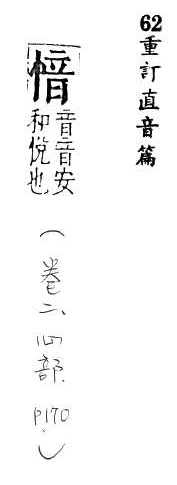 62重訂直音篇
愔
音音安
和悅也
(卷二、心部. P170.)